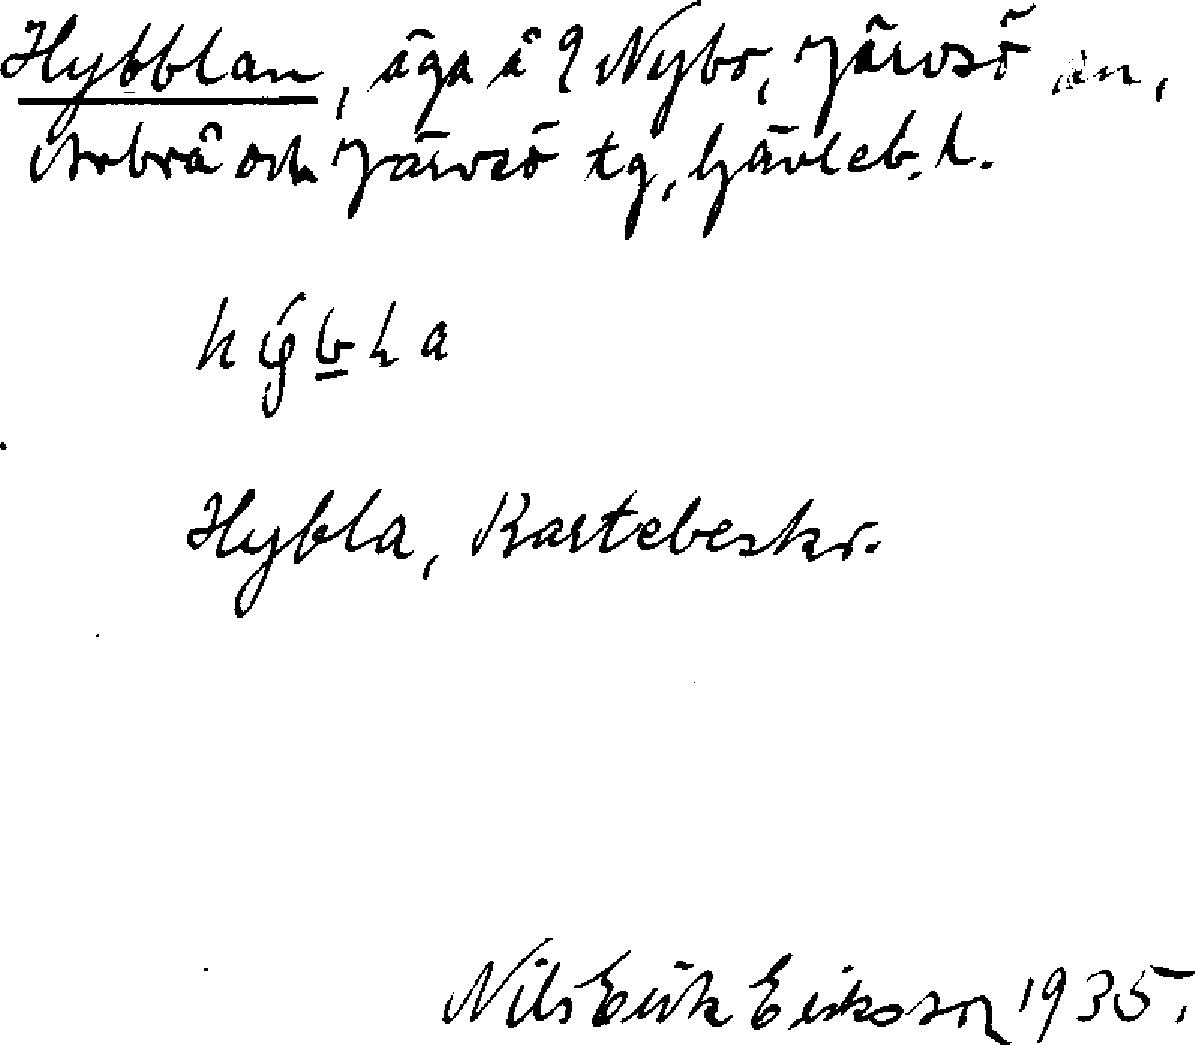 Hybblan, äga å 9 Nybo, Järvsö sn,
Arbrå och Järvsö tg, Gävleb. l.
Hybla, Kartebeskr.
Nils Erik Eriksson 1935.